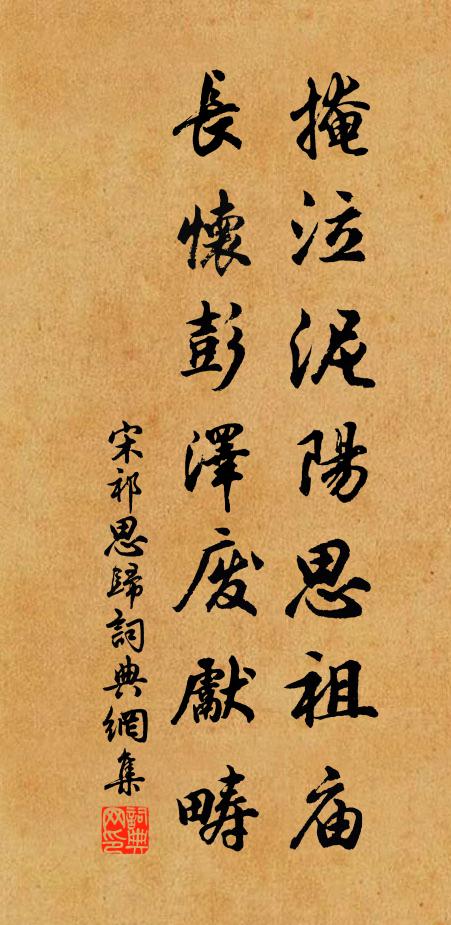 掩泣泥陽思祖庙
長懷彭澤廢獻疇
宋祁思歸詞典網集
詞典网印